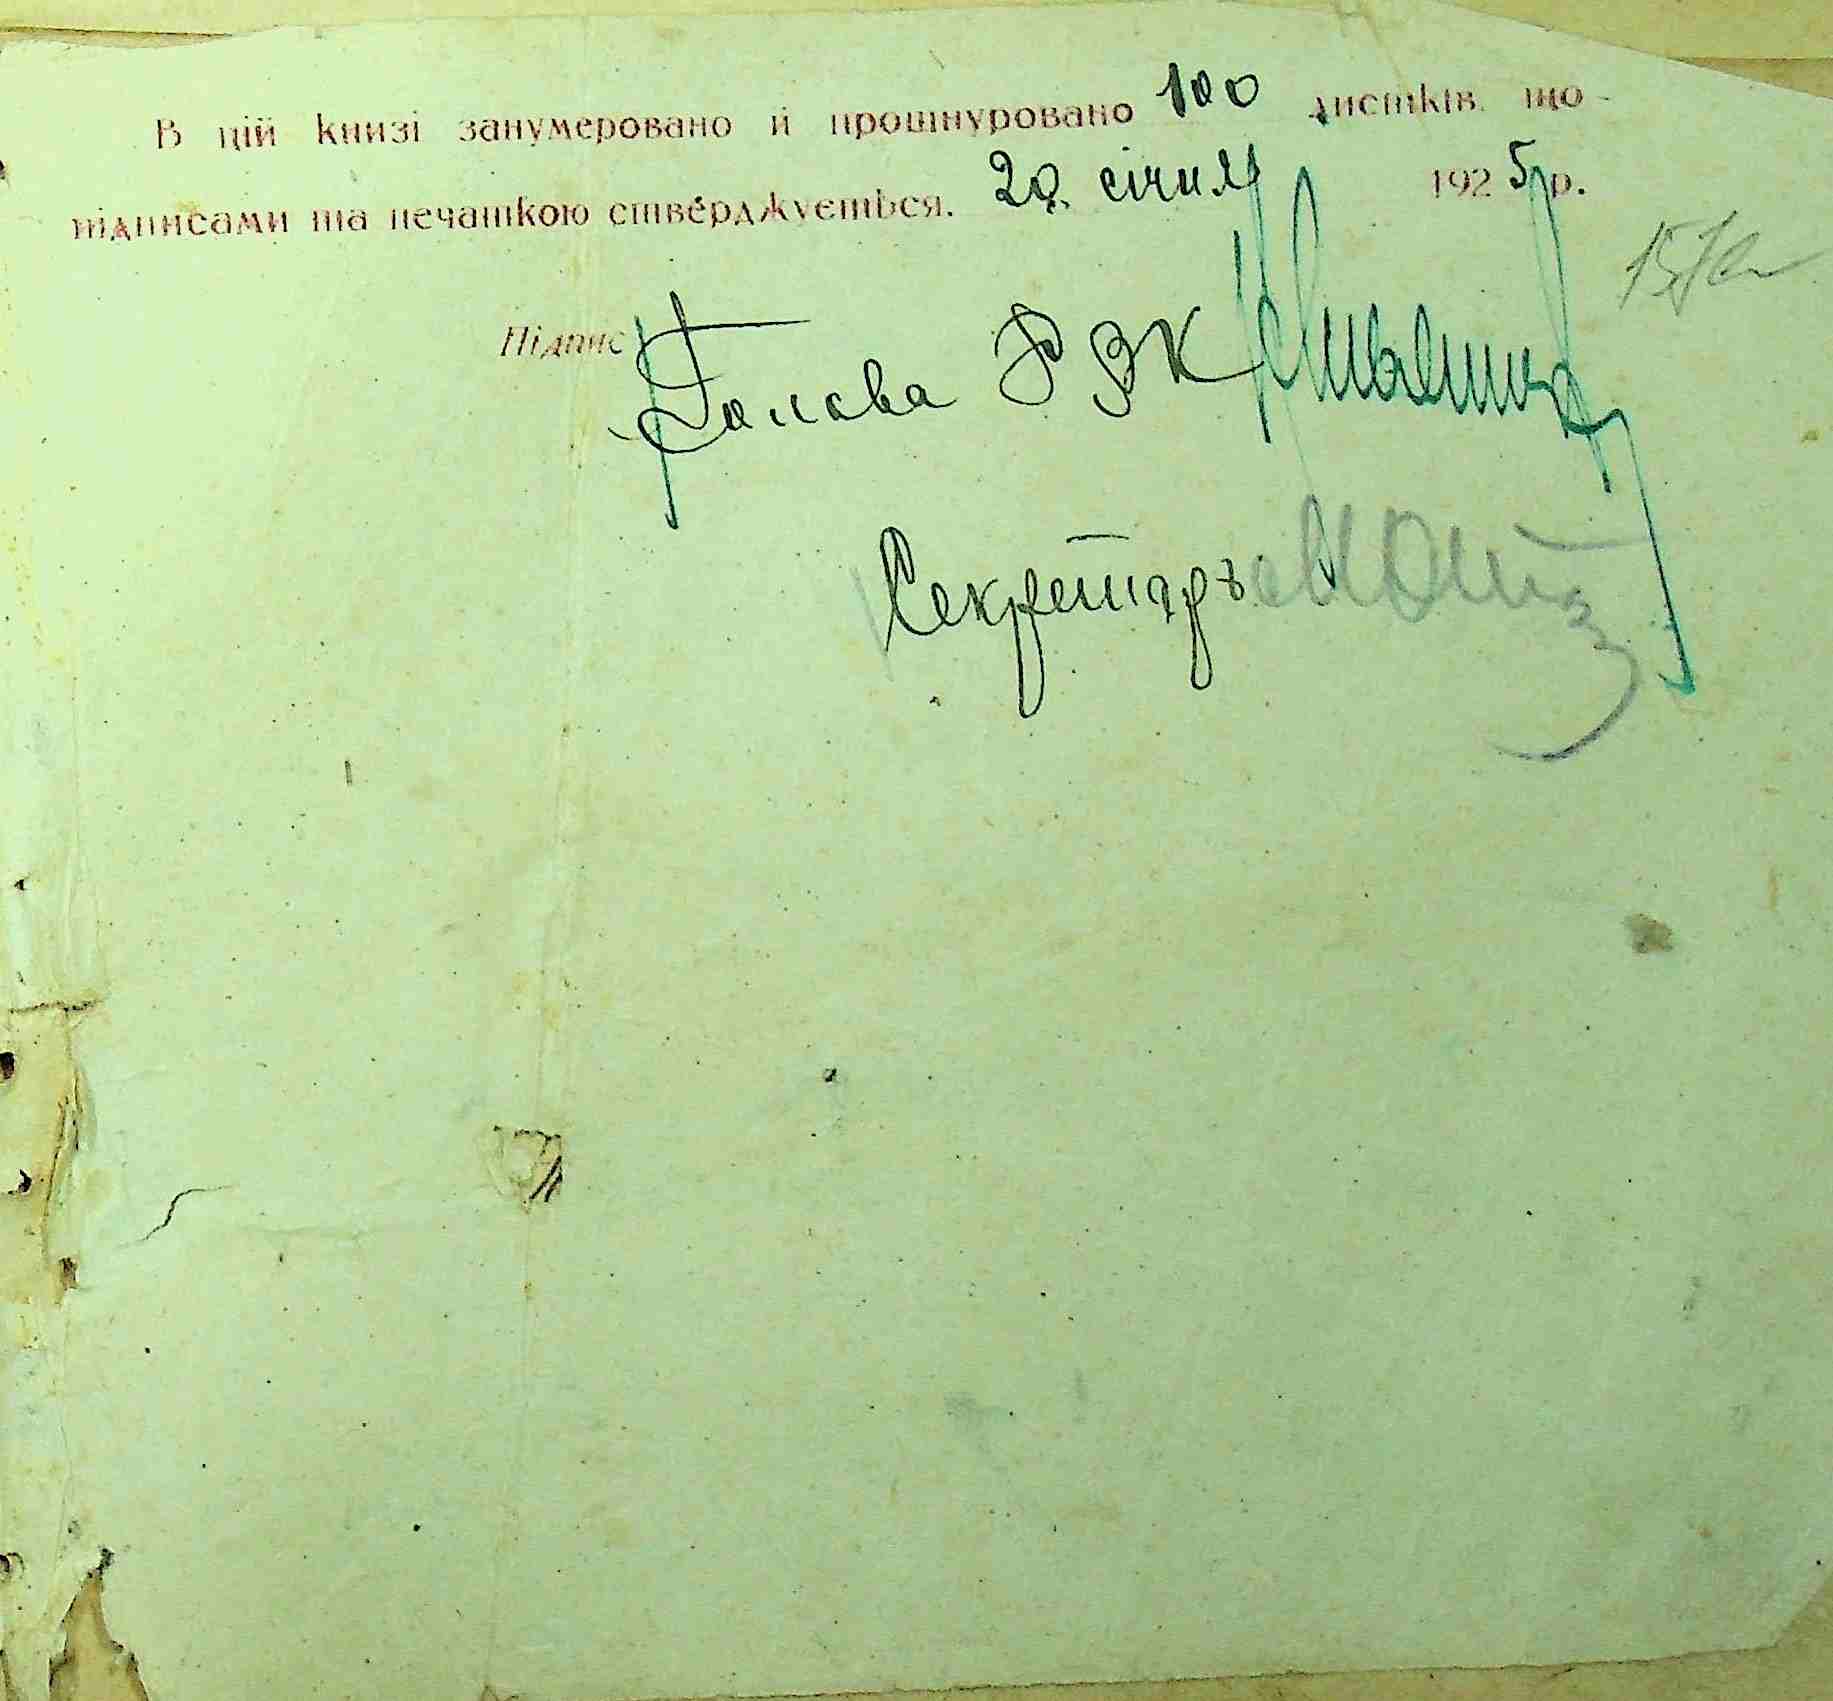 В цій книзі занумеровано й прошнуровано 100 листків, що
підписами та печаткою стверджується. 20 січня 1925 р.
Підпис Голова РВК
Секретарь